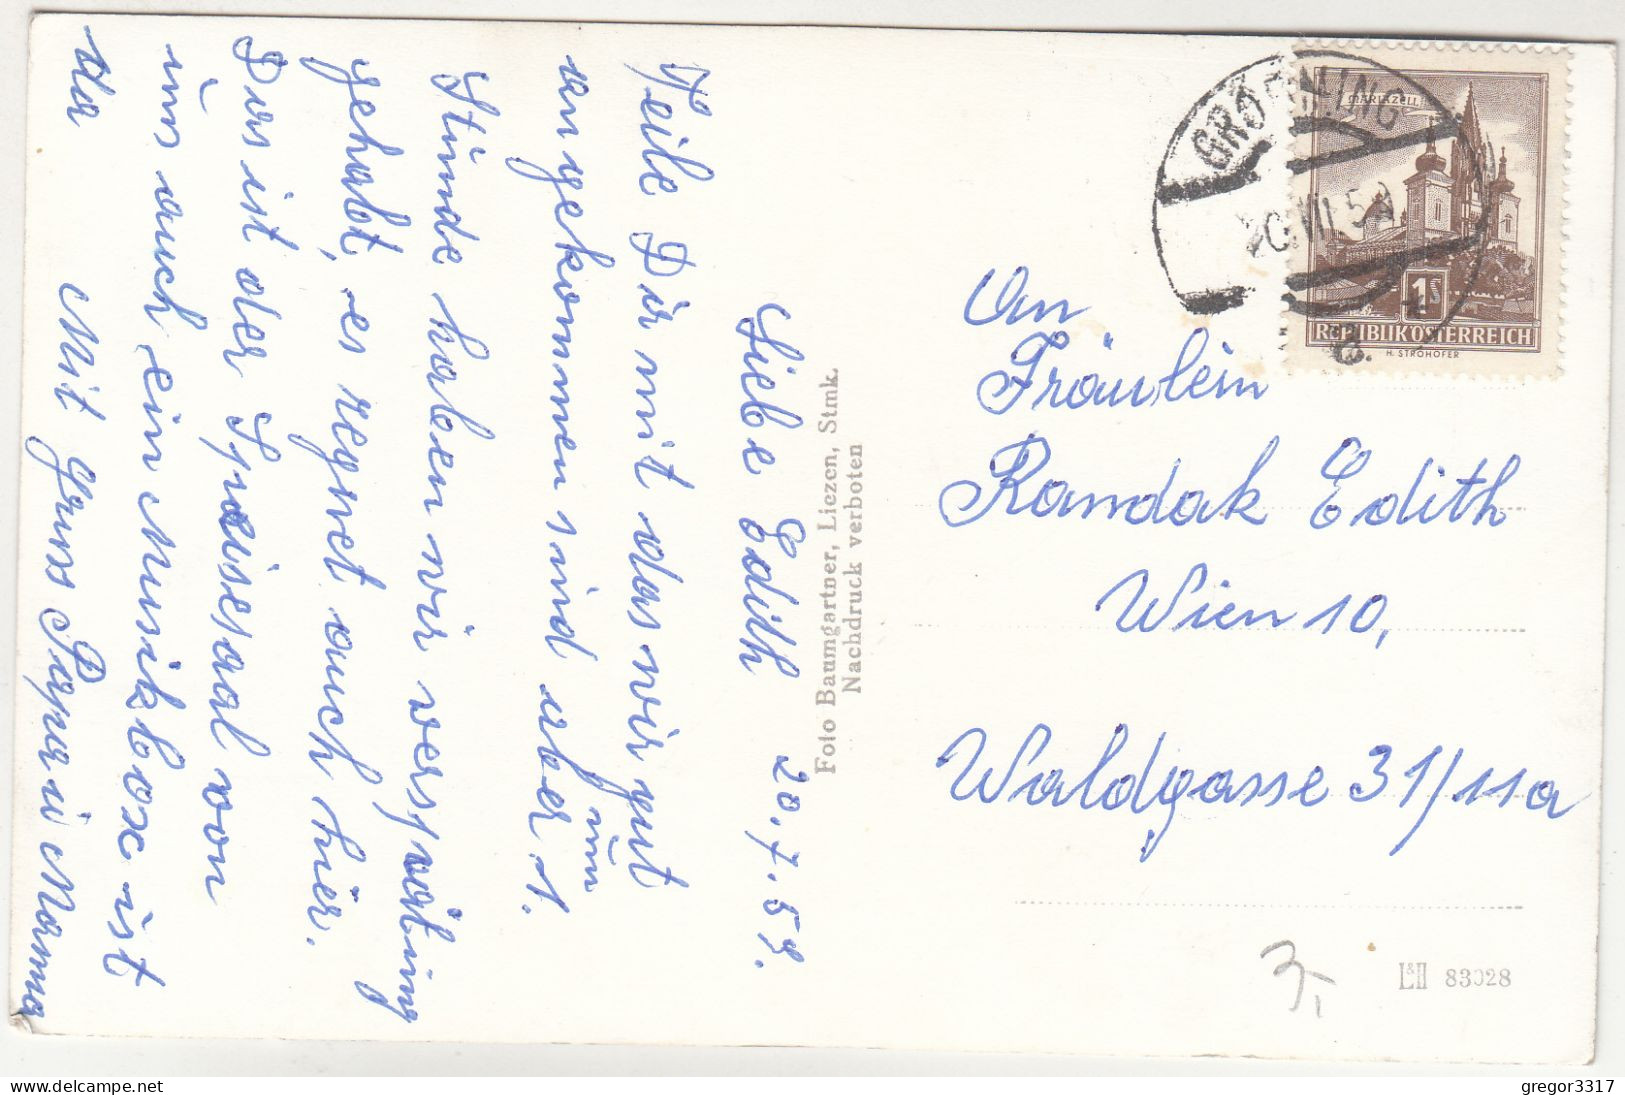 Liebe Edith 20.7.59.
Teile Dir mit das wir gut
angekommen sind aber 1.
um
Stünde haben wir verspätung
gehabt, es regnet auch hier.
Das ist der Speisesaal von
uns auch ein Musikbox ist
da
Mit Gruss Papa u Mama
Foto Baumgartner, Liezen, Stmk.
Nachdruck verboten
GRÖBMING
20.VII.59
MARIAZELL
1S
REPUBLIK ÖSTERREICH
H. STROHOFER
An
Fräulein
Randak Edith
Wien 10,
Waldgasse 31/11a
L&H 83028
gregor3317